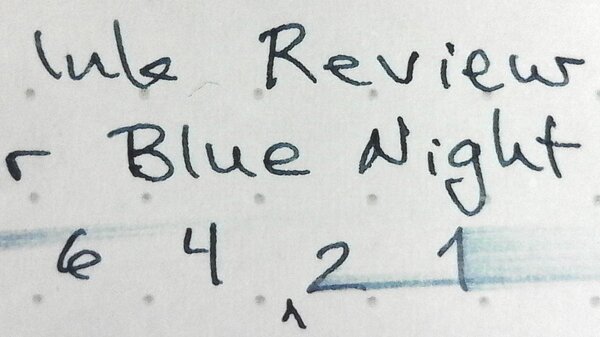 Ink Review
r Blue Night
6 4 2 1